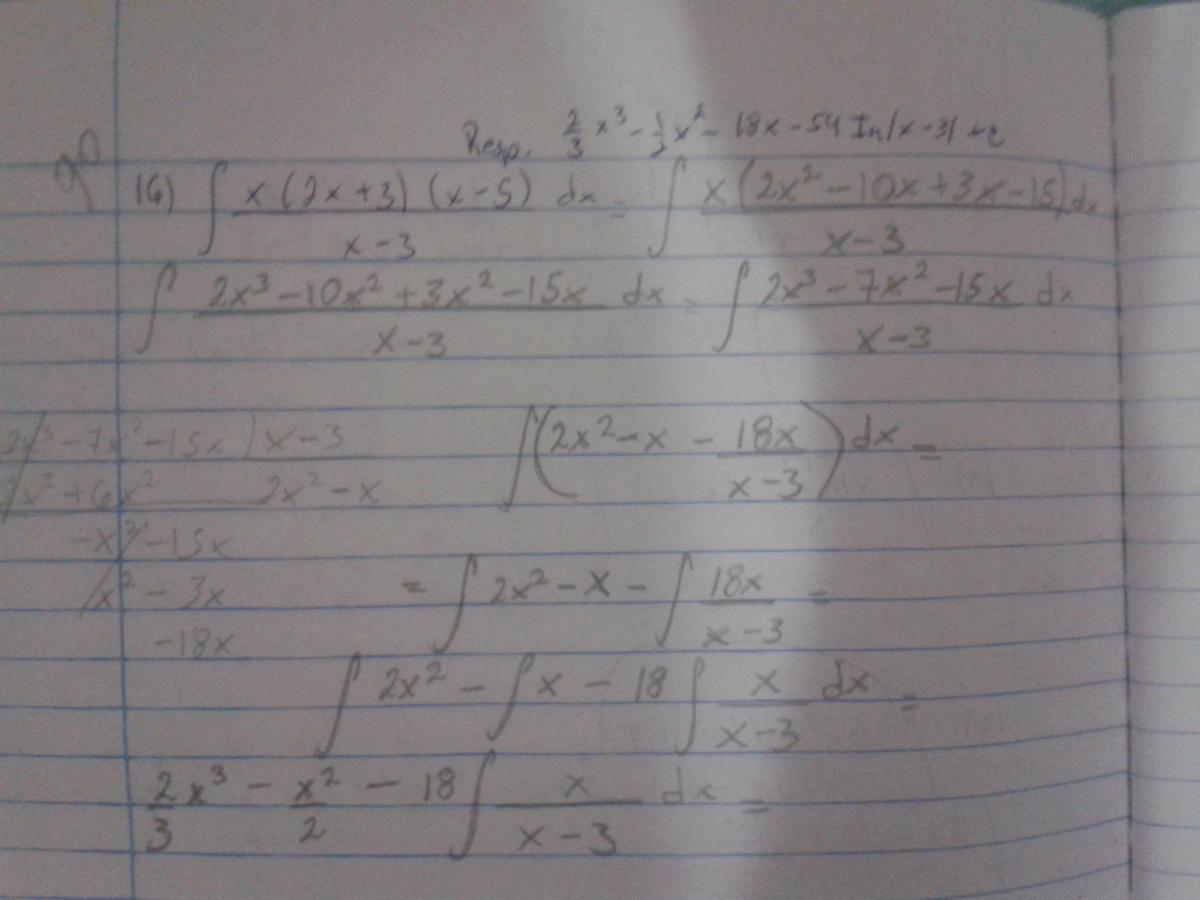 90
Resp. 2/3 x³ - 1/2 x² - 18x - 54 In|x-3| + c
16) ∫ x(2x+3)(x-5)/(x-3) dx = ∫ x(2x²-10x+3x-15)/(x-3) dx
∫ (2x³-10x²+3x²-15x)/(x-3) dx = ∫ (2x³-7x²-15x)/(x-3) dx
2x³-7x²-15x | x-3
2x³+6x² 2x²-x
-x²-15x
x²-3x
-18x
∫(2x²-x - 18x/(x-3)) dx =
= ∫ 2x²-x - ∫ 18x/(x-3) =
∫ 2x² - ∫ x - 18 ∫ x/(x-3) dx =
2/3 x³ - x²/2 - 18 ∫ x/(x-3) dx =